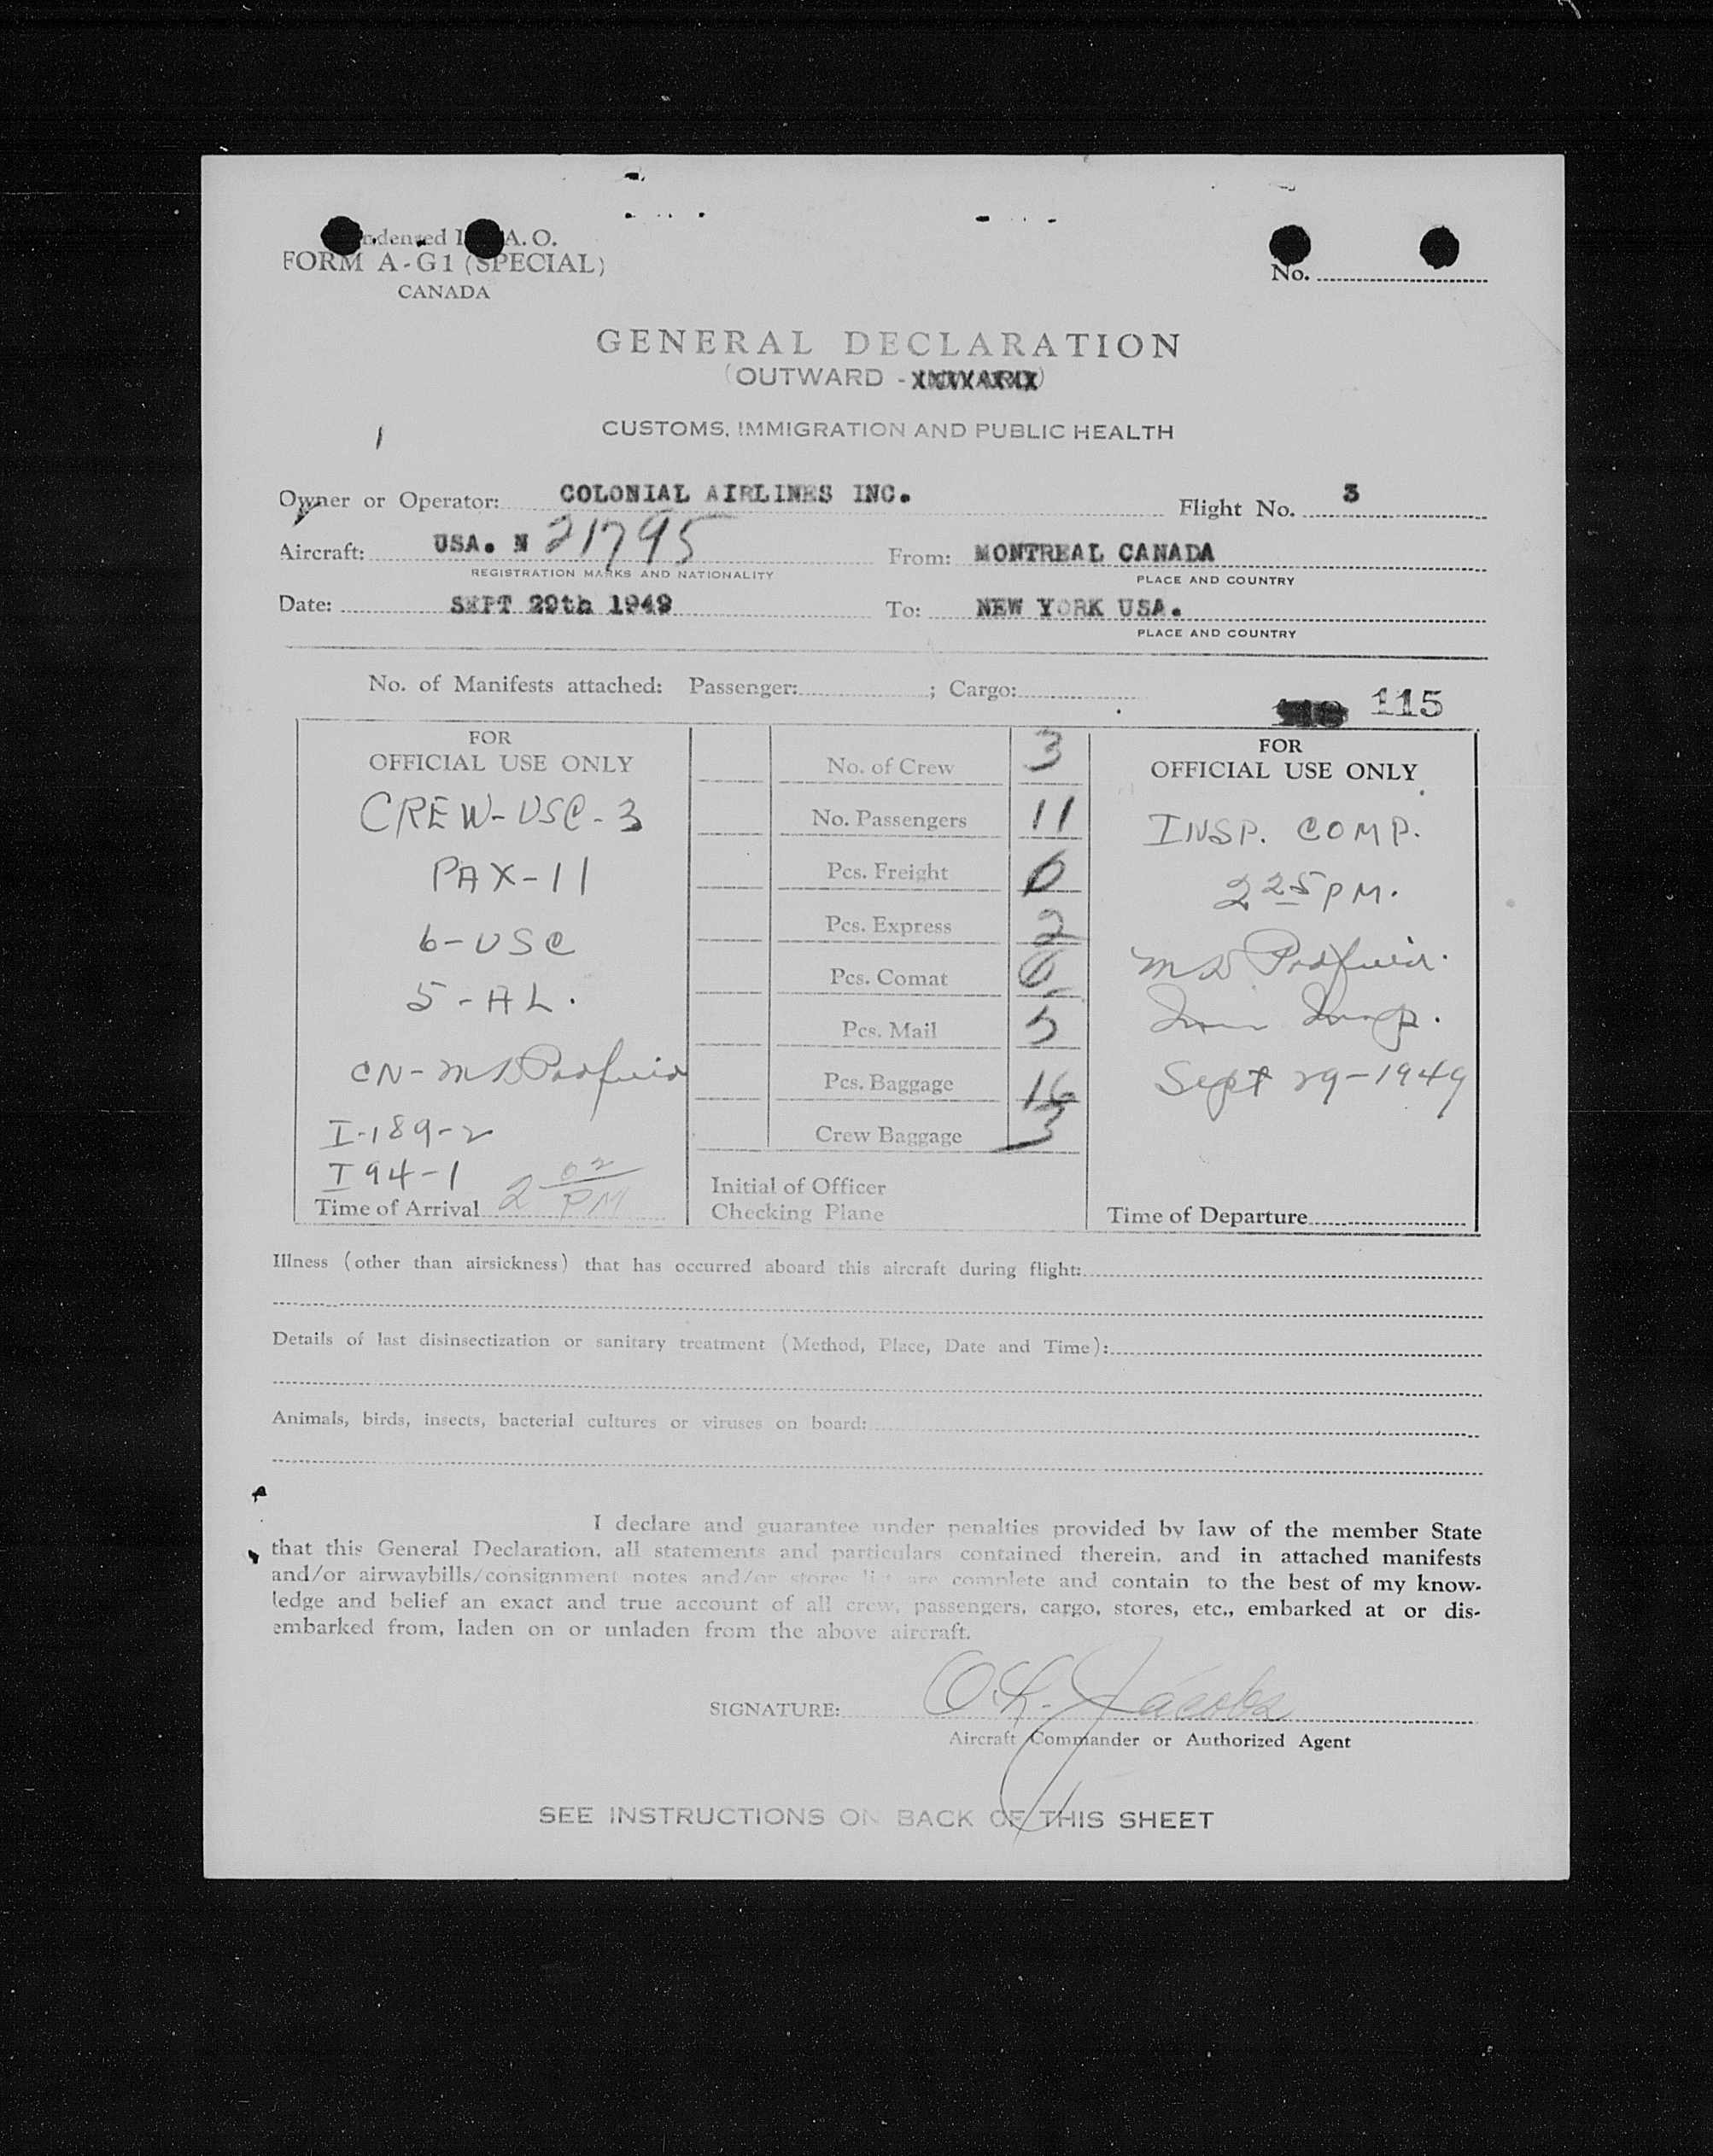 ndensed I A. O.
FORM A-G1 (SPECIAL)
CANADA
No.
GENERAL DECLARATION
(OUTWARD - XXXXXXXX)
CUSTOMS, IMMIGRATION AND PUBLIC HEALTH
Owner or Operator: COLONIAL AIRLINES INC. Flight No. 3
Aircraft: USA. N 21795 From: MONTREAL CANADA
REGISTRATION MARKS AND NATIONALITY PLACE AND COUNTRY
Date: SEPT 29th 1949 To: NEW YORK USA.
PLACE AND COUNTRY
No. of Manifests attached: Passenger: ; Cargo:
115
FOR
OFFICIAL USE ONLY
CREW-USC-3
PAX-11
6-USC
5-AL.
CN-M D Padfield
I-189-2
I 94-1
Time of Arrival 2 02 PM
No. of Crew 3
No. Passengers 11
Pcs. Freight 0
Pcs. Express 2
Pcs. Comat 0
Pcs. Mail 5
Pcs. Baggage 16
Crew Baggage 3
Initial of Officer
Checking Plane
FOR
OFFICIAL USE ONLY
INSP. COMP.
2 25 PM.
M D Padfield.
Imm Insp.
Sept 29-1949
Time of Departure
Illness (other than airsickness) that has occurred aboard this aircraft during flight:
Details of last disinsectization or sanitary treatment (Method, Place, Date and Time):
Animals, birds, insects, bacterial cultures or viruses on board:
I declare and guarantee under penalties provided by law of the member State
that this General Declaration, all statements and particulars contained therein, and in attached manifests
and/or airwaybills/consignment notes and/or stores list are complete and contain to the best of my know-
ledge and belief an exact and true account of all crew, passengers, cargo, stores, etc., embarked at or dis-
embarked from, laden on or unladen from the above aircraft.
SIGNATURE: O.L. Jacobs
Aircraft Commander or Authorized Agent
SEE INSTRUCTIONS ON BACK OF THIS SHEET